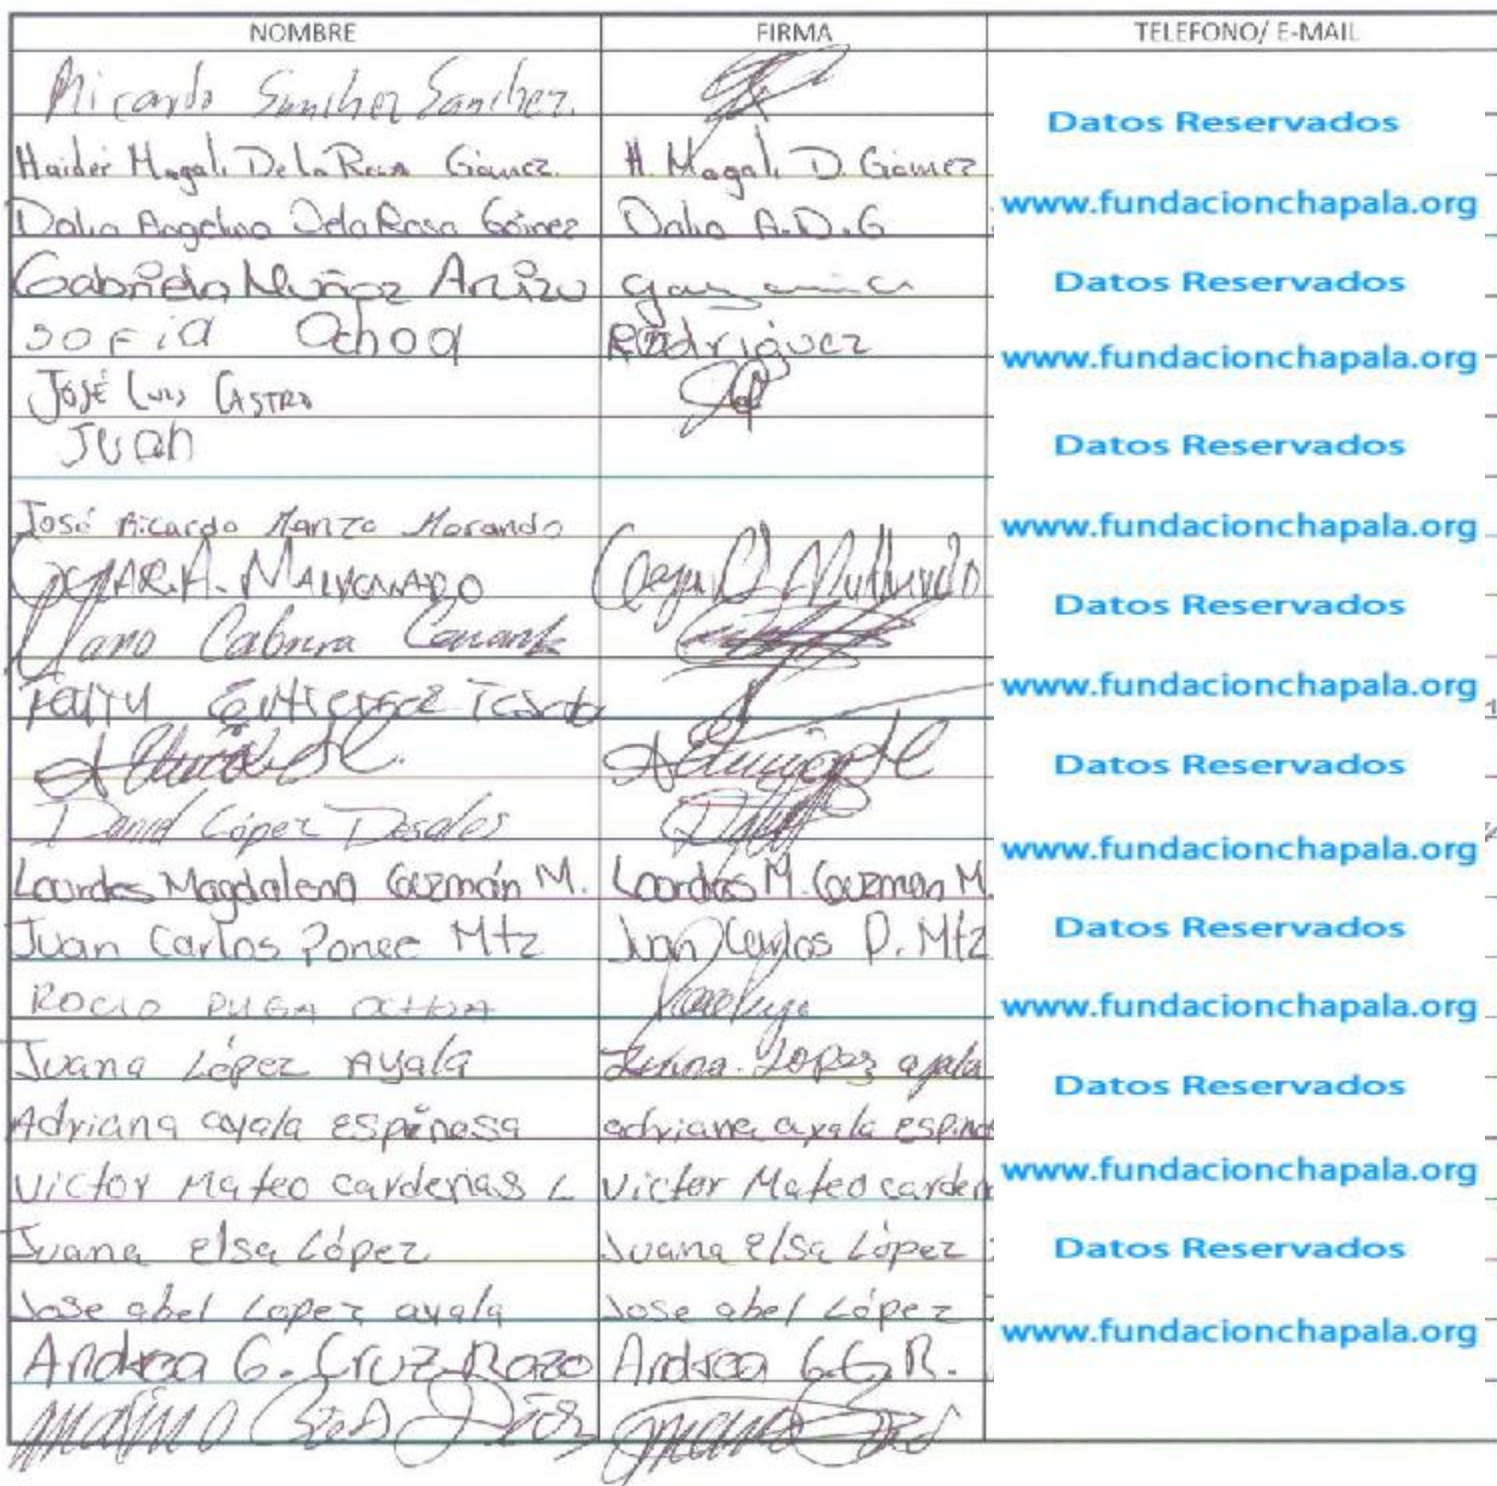 NOMBRE FIRMA TELEFONO/ E-MAIL
Ricardo Sanchez Sanchez.
Datos Reservados
Haider Magali De La Rosa Gómez. H. Magali D. Gómez
www.fundacionchapala.org
Dalia Angelina De la Rosa Gómez Dalia A.D.G
Gabriela Muñoz Anizu
Datos Reservados
Sofia Ochoa Rodriguez
www.fundacionchapala.org
José Luis Castro
Juan
Datos Reservados
José Ricardo Manzo Morando
www.fundacionchapala.org
A. Maldonado
Datos Reservados
Cabrera
Gutierrez
www.fundacionchapala.org
Datos Reservados
David López Rosales
www.fundacionchapala.org
Lourdes Magdalena Guzmán M. Lourdes M. Guzman M.
Juan Carlos Ponce Mtz Juan Carlos P. Mtz
Datos Reservados
ROCIO PUGA OCHOA
www.fundacionchapala.org
Juana López Ayala Juana Lopez ayala
Datos Reservados
Adriana ayala espinosa adriana ayala espino
Victor Mateo cardenas L Victor Mateo carden
www.fundacionchapala.org
Juana elsa López. Juana elsa López
Datos Reservados
Jose abel Lopez ayala Jose abel López
www.fundacionchapala.org
Andrea G. Cruz Razo Andrea G.C. R.